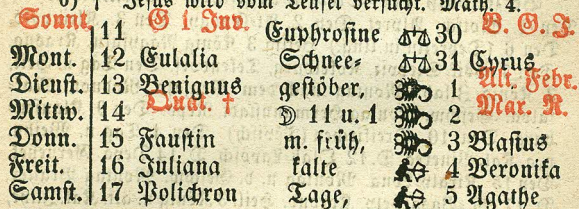 6) Jesus wird vom Teufel versucht. Math. 4.
Sonnt. 11 G i Inv. Euphrosine 30 B. G. J.
Mont. 12 Eulalia Schnee- 31 Cyrus
Dienst. 13 Benignus gestöber, 1 Alt. Febr.
Mittw. 14 Quat. † ☽ 11 u. 1 2 Mar. R.
Donn. 15 Faustin m. früh, 3 Blasius
Freit. 16 Juliana kalte 4 Veronika
Samst. 17 Polichron Tage, 5 Agathe